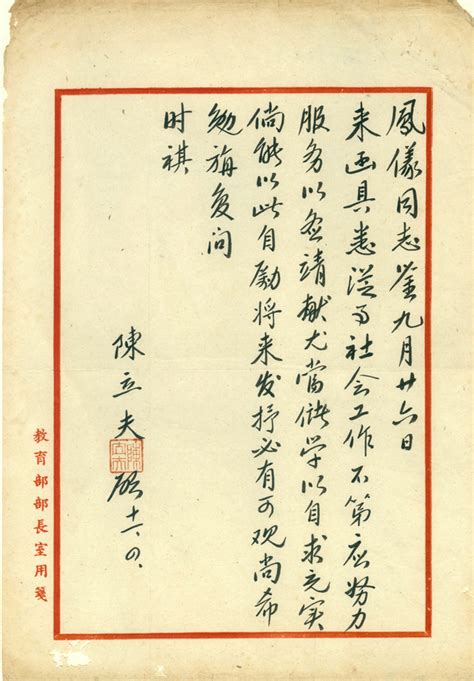 鳳儀同志鉴九月廿六日
来函具悉從事社会工作不第应努力
服务以盡靖献尤當储学以自求充实
倘能以此自勵将来发抒必有可观尚希
勉旃复问
时祺
陳立夫
教育部部長室用箋